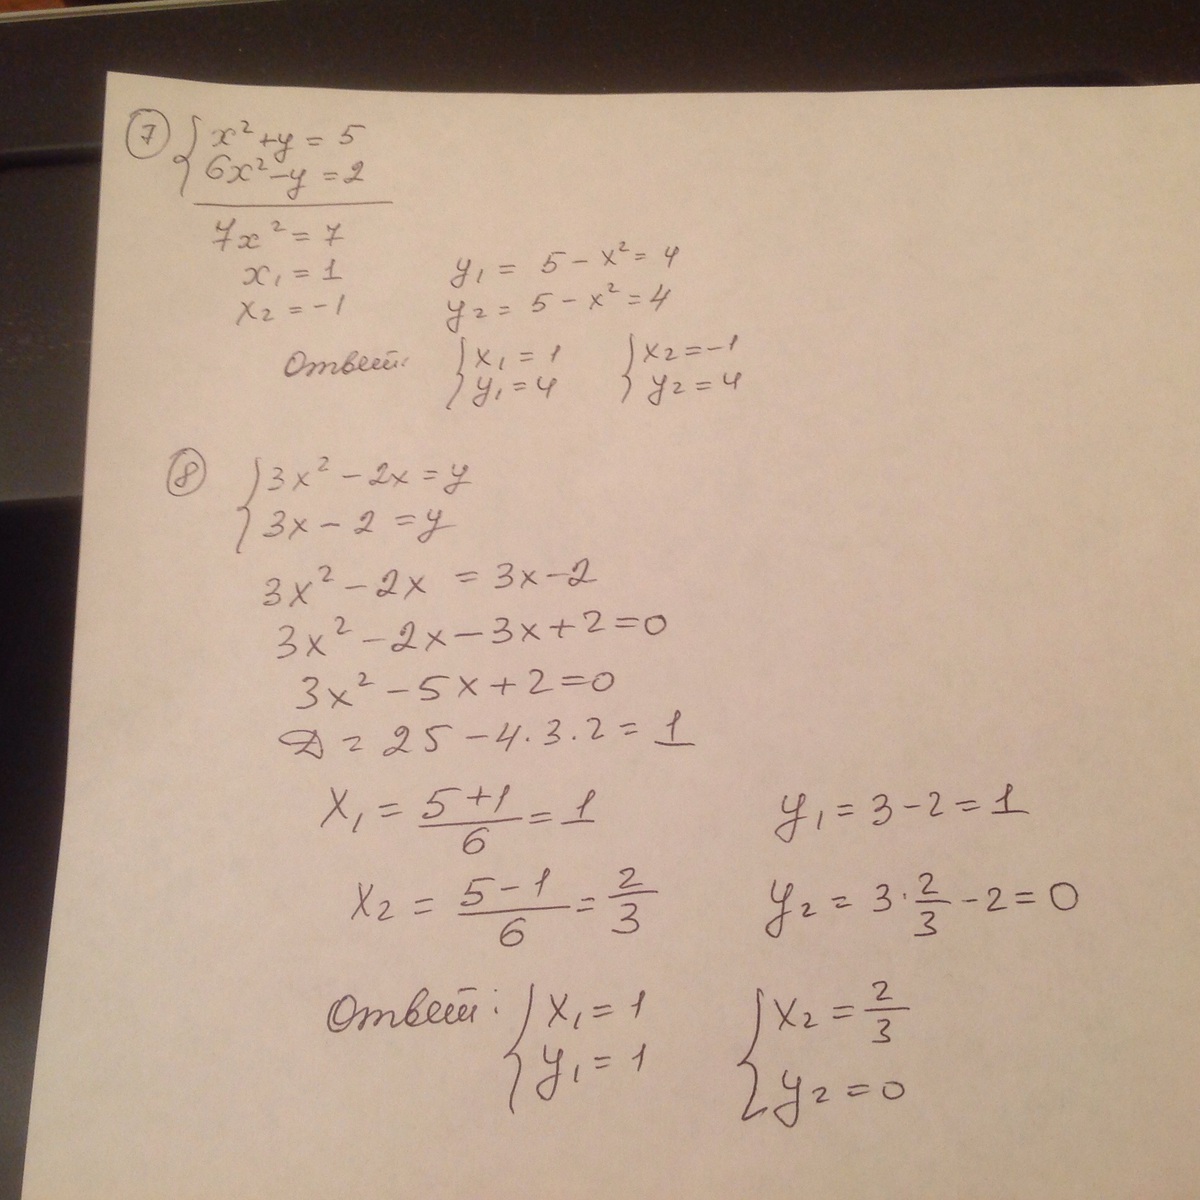 ⑦ { x² + y = 5
6x² - y = 2
7x² = 7
x₁ = 1
x₂ = -1
y₁ = 5 - x² = 4
y₂ = 5 - x² = 4
Ответ: { x₁ = 1 { x₂ = -1
y₁ = 4 y₂ = 4
⑧ { 3x² - 2x = y
3x - 2 = y
3x² - 2x = 3x - 2
3x² - 2x - 3x + 2 = 0
3x² - 5x + 2 = 0
D = 25 - 4 · 3 · 2 = 1
x₁ = (5 + 1)/6 = 1 y₁ = 3 - 2 = 1
x₂ = (5 - 1)/6 = 2/3 y₂ = 3 · 2/3 - 2 = 0
Ответ: { x₁ = 1 { x₂ = 2/3
y₁ = 1 y₂ = 0